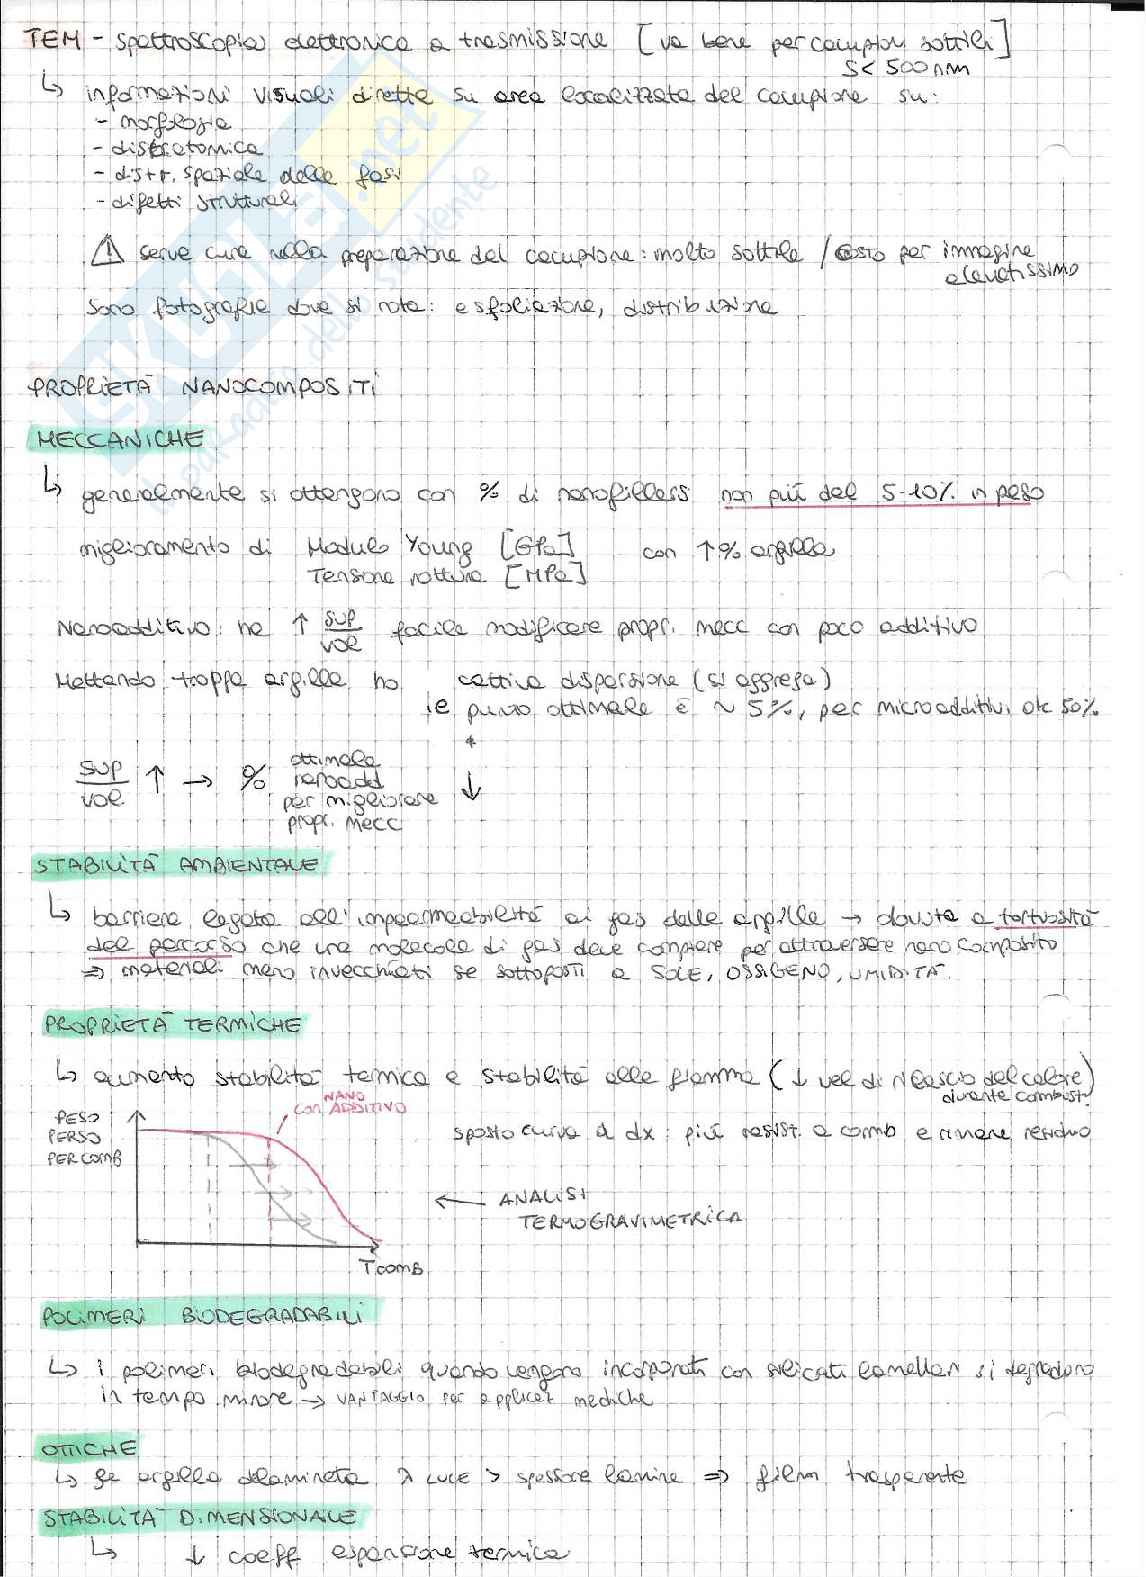 TEM - spettroscopia elettronica a trasmissione [va bene per campioni sottili]
S< 500 nm
↳ informazioni visuali dirette su area localizzata del campione su:
- morfologia
- distr. atomica
- distr. spaziale delle fasi
- difetti strutturali
⚠ serve cura nella preparazione del campione: molto sottile / costo per immagine
elevatissimo
Sono fotografie dove si nota: esfoliazione, distribuzione
PROPRIETÀ NANOCOMPOSITI
MECCANICHE
↳ generalmente si ottengono con % di nanofillers non più del 5-10% in peso
miglioramento di Modulo Young [GPa] con ↑% argilla
Tensione rottura [MPa]
Nanoadditivo: ha ↑ sup/vol facile modificare propr. mecc con poco additivo
Mettendo troppa argilla ho cattiva dispersione (si aggrega)
ie punto ottimale è ~ 5%, per microadditivi ok 50%
sup/vol. ↑ → % ottimale nanoadd per migliorare propr. mecc ↓
STABILITÀ AMBIENTALE
↳ barriera legata all'impermeabilità ai gas delle argille → dovuta a tortuosità
del percorso che una molecola di gas deve compiere per attraversare nanocomposito
⇒ materiali meno invecchiati se sottoposti a SOLE, OSSIGENO, UMIDITÀ.
PROPRIETÀ TERMICHE
↳ aumento stabilità termica e stabilità alla fiamma (↓ vel di rilascio del calore)
durante combust.
NANO
con ADDITIVO
PESO
PERSO
PER COMB
sposto curva a dx: più resist. a comb e rimane residuo
← ANALISI
TERMOGRAVIMETRICA
T comb
POLIMERI BIODEGRADABILI
↳ i polimeri biodegradabili quando vengono incorporati con silicati lamellari si degradano
in tempo minore → VANTAGGIO per applicaz mediche
OTTICHE
↳ se argilla delaminata λ luce > spessore lamine ⇒ film trasparente
STABILITÀ DIMENSIONALE
↳ ↓ coeff espansione termica